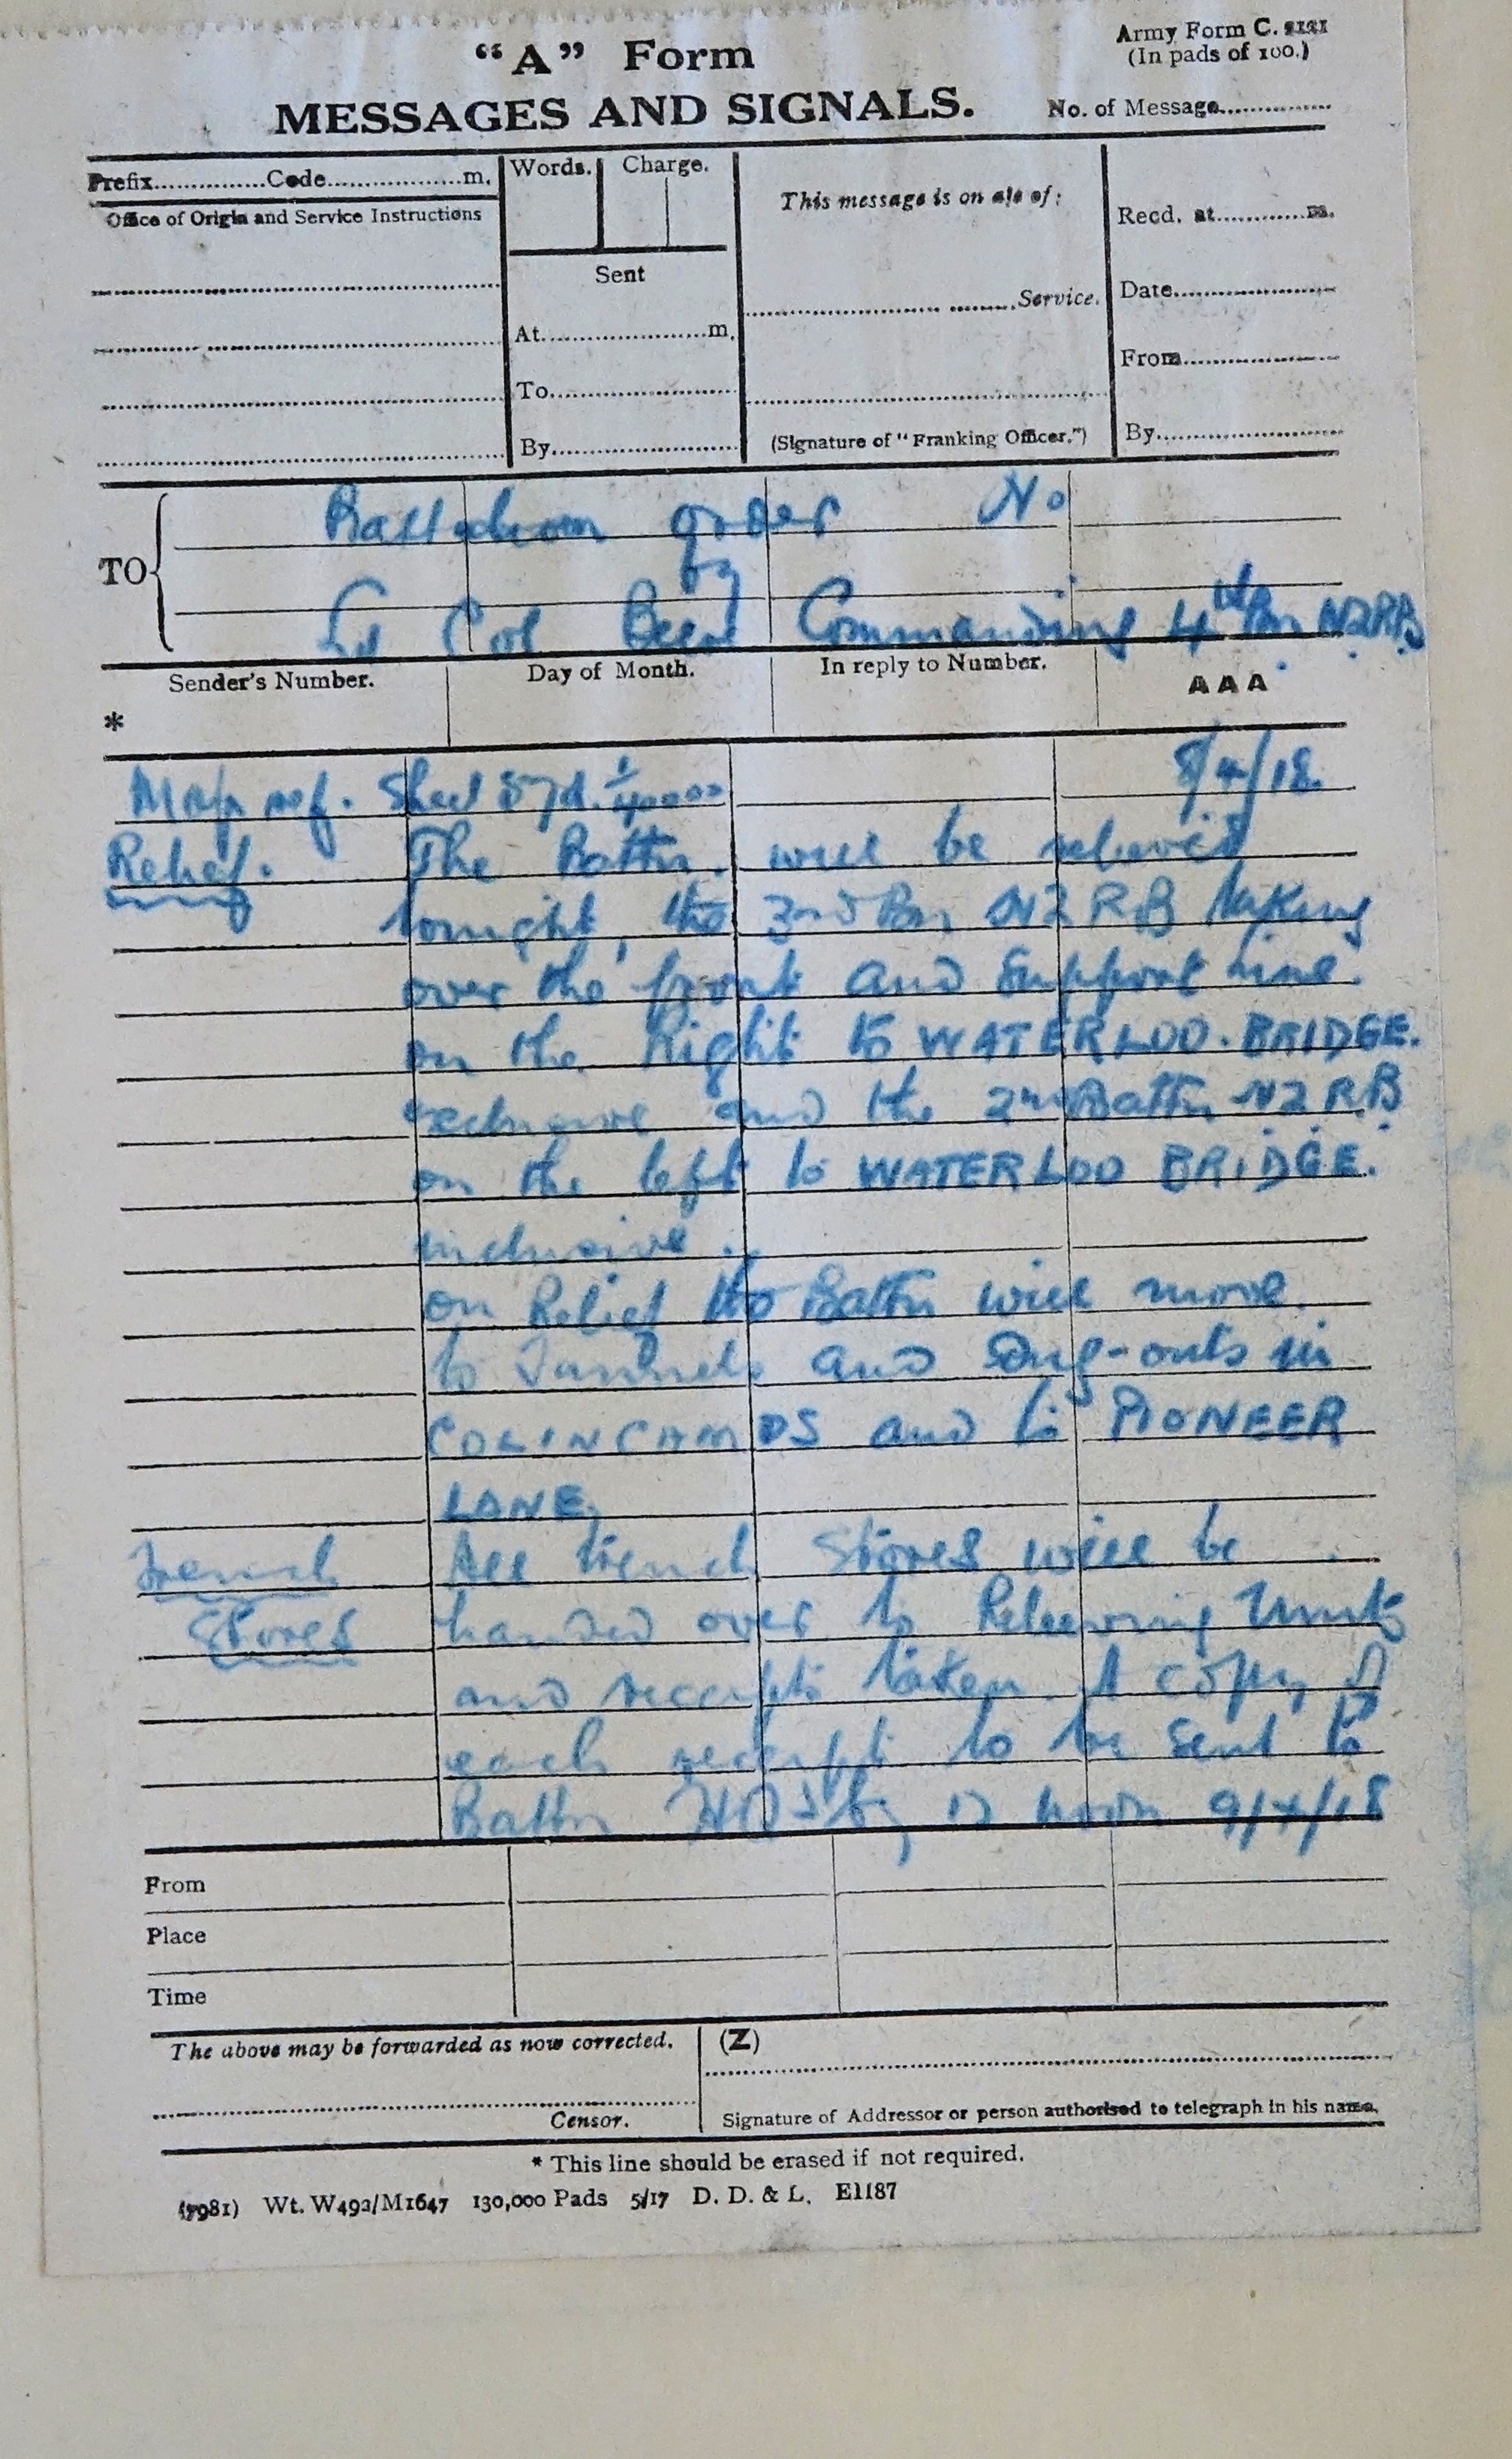 "A" Form
Army Form C. 2121
(In pads of 100.)
MESSAGES AND SIGNALS.
No. of Message
Prefix Code m.
Words. Charge.
This message is on a/c of:
Recd. at m.
Office of Origin and Service Instructions
Sent
Service.
Date
At m.
From
To
By
(Signature of "Franking Officer.")
By
TO
Battalion order No
by
Lt Col Commanding 4th Bn NZRB
Sender's Number.
Day of Month.
In reply to Number.
AAA
*
Map ref. Sheet 57d. 1/40000 8/4/18.
Relief. The Battn. will be relieved
tonight, the 3rd Bn NZRB taking
over the front and Support line.
on the Right to WATERLOO. BRIDGE.
exclusive and the 2nd Battn NZ R.B
on the left to WATERLOO BRIDGE.
inclusive.
on Relief the Battn will move.
to Tunnels and Dug-outs in
COLINCAMPS and to PIONEER
LANE.
Trench All trench Stores will be
Stores handed over to Relieving Units
and receipts taken. A copy of
each receipt to be sent to
Battn HQrs by 12 noon 9/4/18
From
Place
Time
The above may be forwarded as now corrected.
(Z)
Censor.
Signature of Addressor or person authorised to telegraph in his name.
* This line should be erased if not required.
(7981) Wt. W492/M1647 130,000 Pads 5/17 D. D. & L. E1187